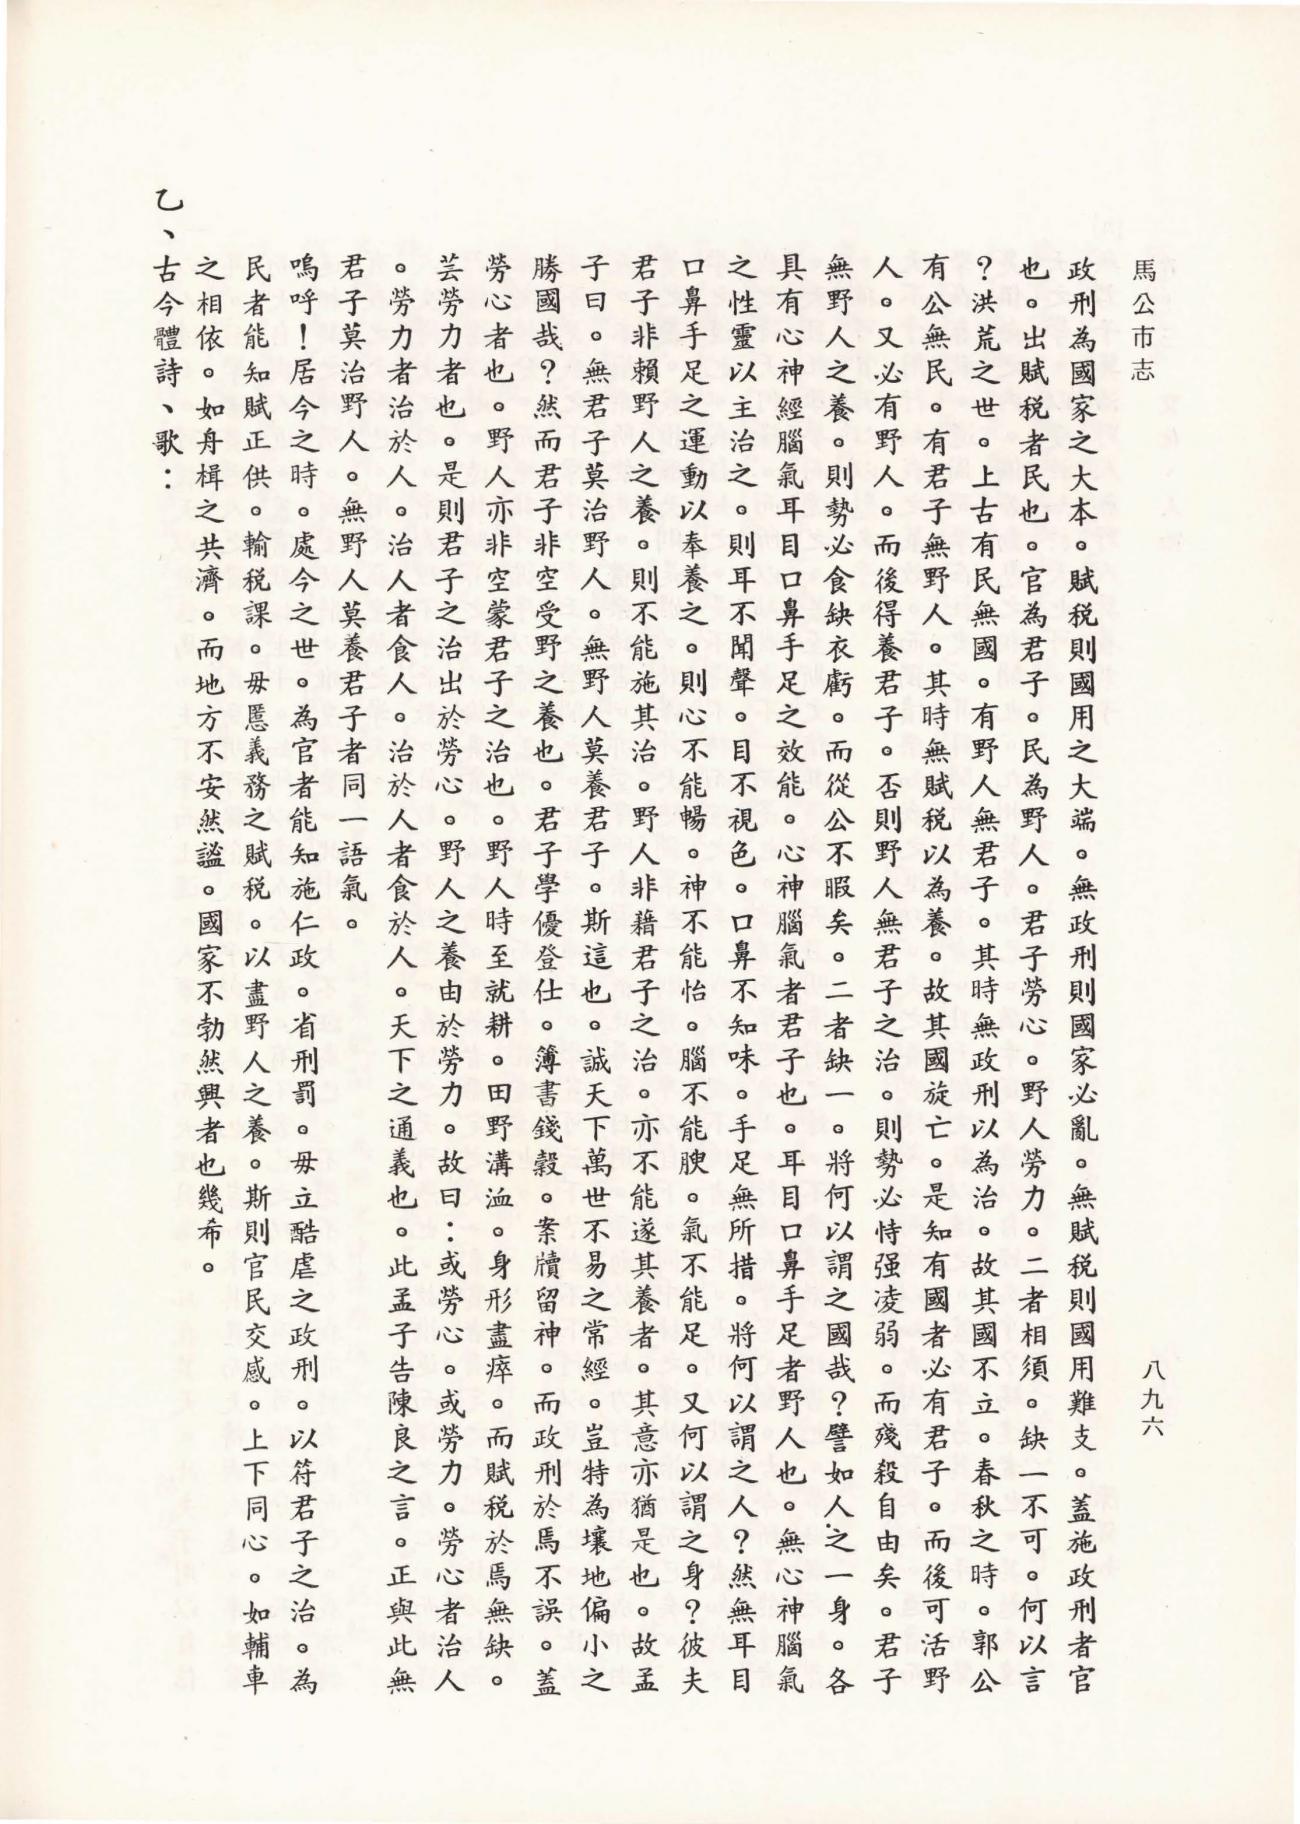 馬公市志
八九六
政刑為國家之大本。賦税則國用之大端。無政刑則國家必亂。無賦税則國用難支。蓋施政刑者官
也。出賦税者民也。官為君子。民為野人。君子勞心。野人勞力。二者相須。缺一不可。何以言
？洪荒之世。上古有民無國。有野人無君子。其時無政刑以為治。故其國不立。春秋之時。郭公
有公無民。有君子無野人。其時無賦税以為養。故其國旋亡。是知有國者必有君子。而後可活野
人。又必有野人。而後得養君子。否則野人無君子之治。則勢必恃强凌弱。而殘殺自由矣。君子
無野人之養。則勢必食缺衣虧。而從公不暇矣。二者缺一。將何以謂之國哉？譬如人之一身。各
具有心神經腦氣耳目口鼻手足之效能。心神腦氣者君子也。耳目口鼻手足者野人也。無心神腦氣
之性靈以主治之。則耳不聞聲。目不視色。口鼻不知味。手足無所措。將何以謂之人？然無耳目
口鼻手足之運動以奉養之。則心不能暢。神不能怡。腦不能腴。氣不能足。又何以謂之身？彼夫
君子非賴野人之養。則不能施其治。野人非藉君子之治。亦不能遂其養者。其意亦猶是也。故孟
子曰。無君子莫治野人。無野人莫養君子。斯這也。誠天下萬世不易之常經。豈特為壤地偏小之
勝國哉？然而君子非空受野之養也。君子學優登仕。簿書錢穀。案牘留神。而政刑於焉不誤。蓋
勞心者也。野人亦非空蒙君子之治也。野人時至就耕。田野溝洫。身形盡瘁。而賦税於焉無缺。
芸勞力者也。是則君子之治出於勞心。野人之養由於勞力。故曰：或勞心。或勞力。勞心者治人
。勞力者治於人。治人者食人。治於人者食於人。天下之通義也。此孟子告陳良之言。正與此無
君子莫治野人。無野人莫養君子者同一語氣。
嗚呼！居今之時。處今之世。為官者能知施仁政。省刑罰。毋立酷虐之政刑。以符君子之治。為
民者能知賦正供。輸税課。毋慝義務之賦税。以盡野人之養。斯則官民交感。上下同心。如輔車
之相依。如舟楫之共濟。而地方不安然謐。國家不勃然興者也幾希。
乙、古今體詩、歌：